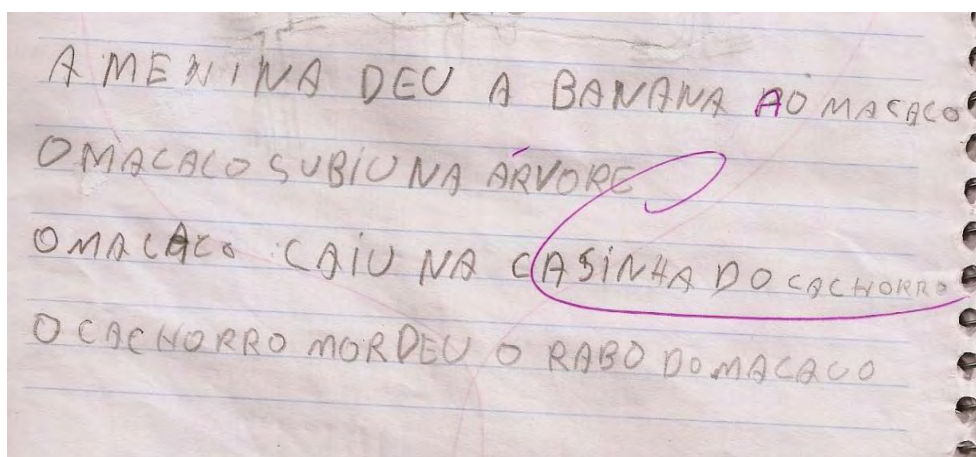 A MENINA DEU A BANANA AO MACACO
O MACACO SUBIU NA ÁRVORE
O MACACO CAIU NA CASINHA DO CACHORRO
O CACHORRO MORDEU O RABO DO MACACO